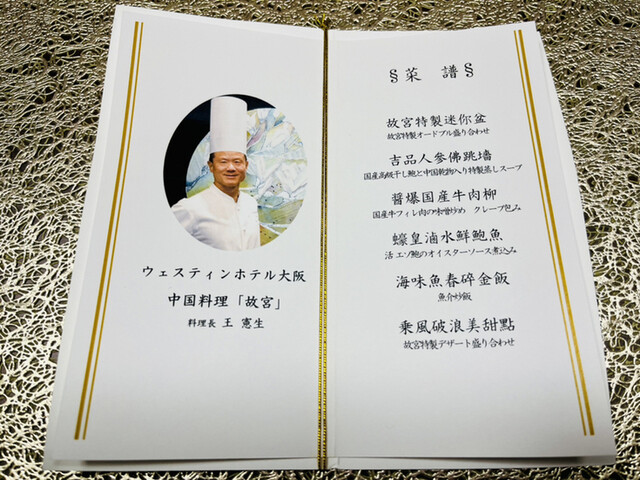 ウェスティンホテル大阪
中国料理「故宮」
料理長 王 憲生
§菜 譜§
故宮特製迷你盆
故宮特製オードブル盛り合わせ
吉品人参佛跳墻
国産高級干し鮑と中国乾物入り特製蒸しスープ
醤爆国産牛肉柳
国産牛フィレ肉の味噌炒め クレープ包み
蠔皇滷水鮮鮑魚
活エゾ鮑のオイスターソース煮込み
海味魚春碎金飯
魚介炒飯
乘風破浪美甜點
故宮特製デザート盛り合わせ